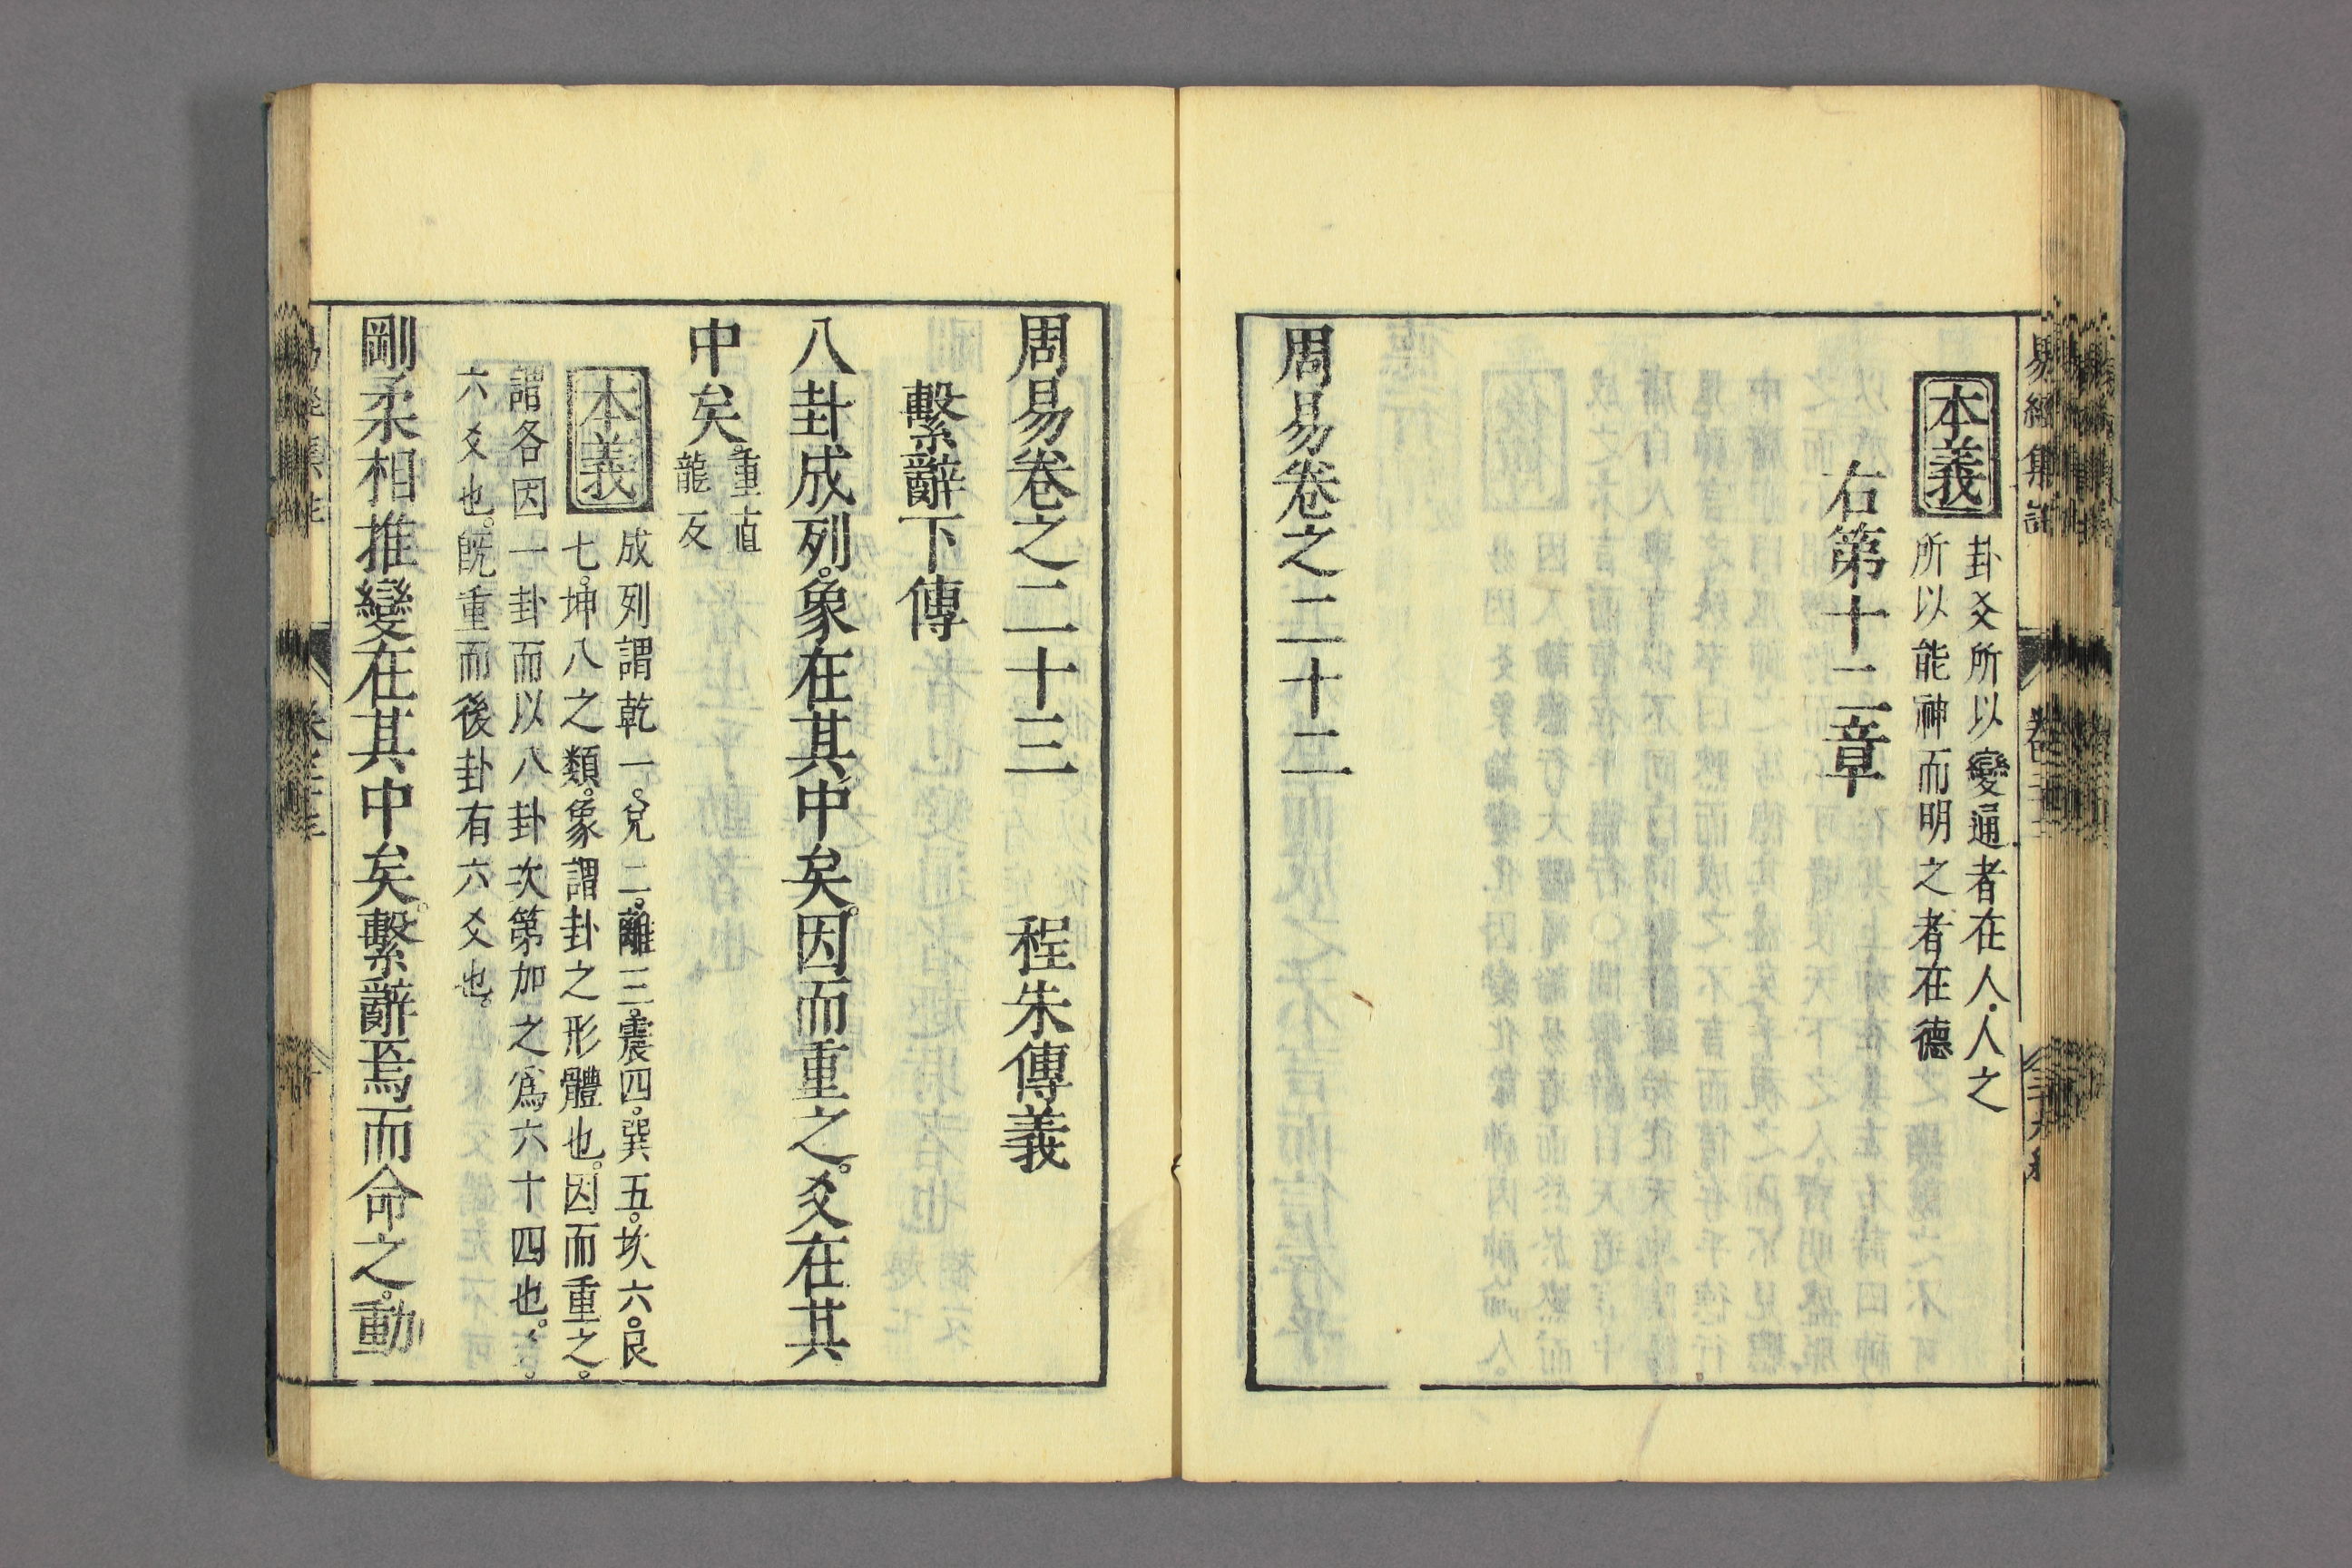 易經集註
本義
卦爻所以變通者在人.人之
所以能神而明之者在德
右第十二章
周易卷之二十二
周易卷之二十三 程朱傳義
繫辭下傳
八卦成列。象在其中矣。因而重之。爻在其
中矣。重直
龍反
本義
成列謂乾一。兌二。離三。震四。巽五。坎六。艮
七。坤八之類。象謂卦之形體也。因而重之。
謂各因一卦而以八卦次第加之爲六十四也。
六爻也。旣重而後卦有六爻也。
剛柔相推變在其中矣。繫辭焉而命之。動